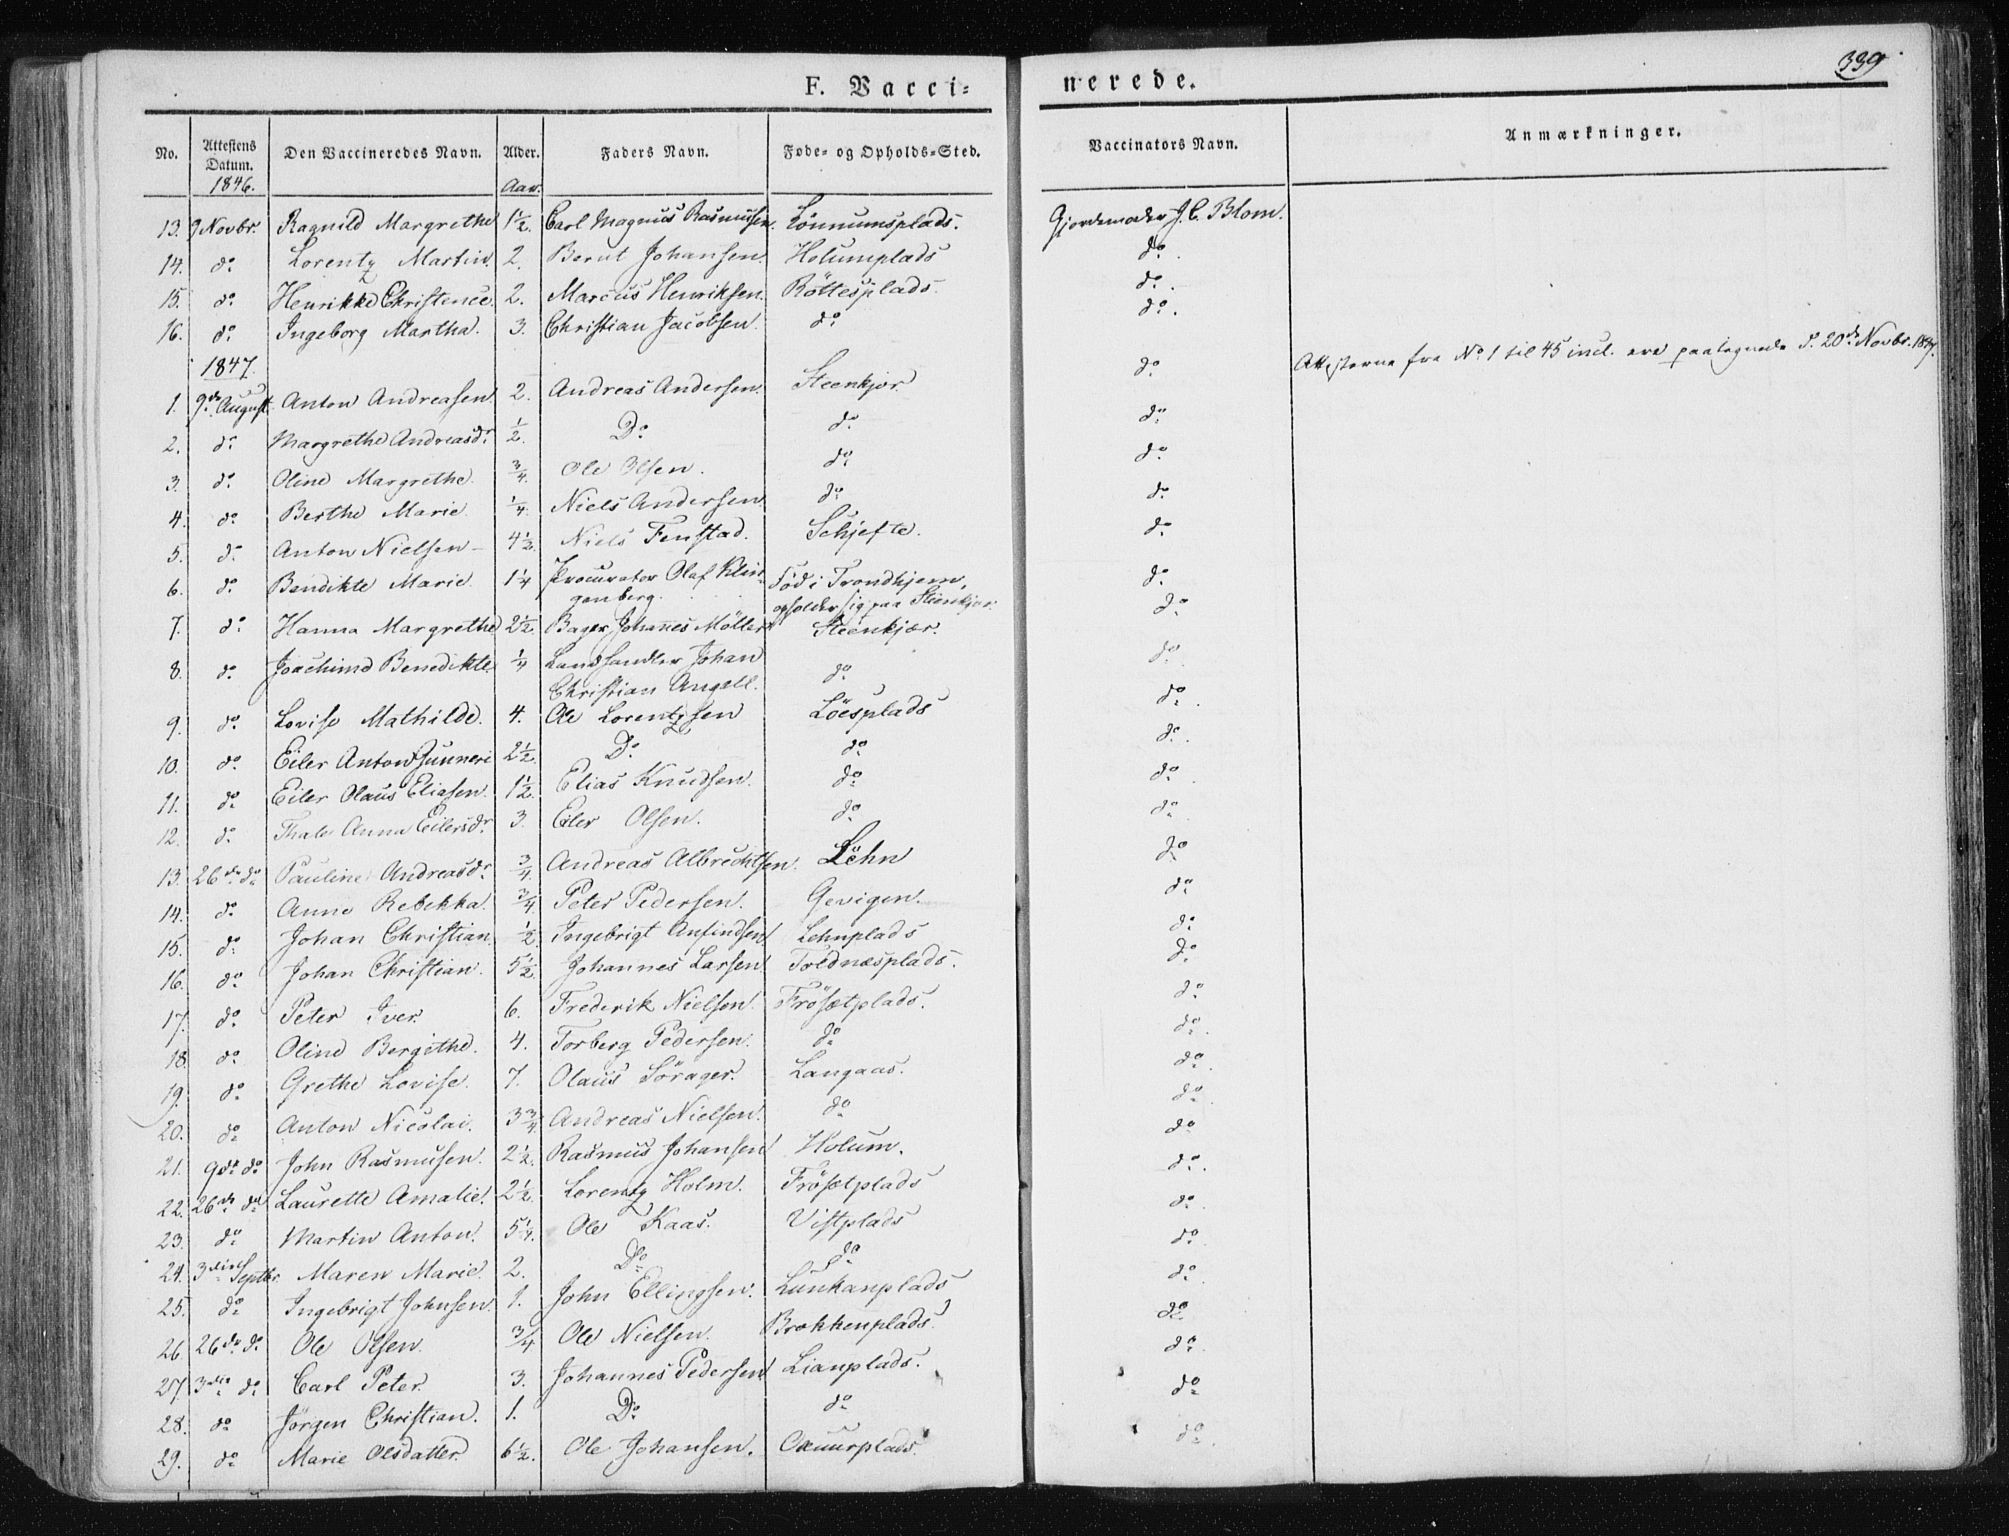 339
F. Vacci=nerede.
No. Attestens Datum. Den Vaccineredes Navn. Alder. Faders Navn. Føde- og Opholds-Sted. Vaccinators Navn. Anmærkninger.
1846. Aar.
13. 9 Novbr. Ragnild Margrethe 1 1/2. Carl Magnus Rasmusen. Lönnumsplads. Gjordemoder J. C. Blom.
14. do Lorentz Martin. 2. Berut Johansen. Holumplads do
15. do Henrikke Christence. 2. Marcus Henriksen. Röttesplads do
16. do Ingeborg Martha. 3. Christian Jacobsen. do do
1847.
1. 9de August Anton Andreasen. 2. Andreas Andersen. Steenkjer do Attesterne fra No 1 til 45 incl. ere paategnede d. 20de Novbr. 1847.
2. do Margrethe Andreasdr. 1/2. Do do do
3. do Oline Margrethe. 3/4. Ole Olsen. do do
4. do Berthe Marie. 1/4. Niels Andersen. do do
5. do Anton Nielsen 4 1/2. Niels Fenstad. Schjefte. do
6. do Bendikte Marie 1 1/4 Procurator Olaf Klin=
genberg. Föd i Trondhjem, do
opholder sig paa Steenkjær.
7. do Hanna Margrethe 2 1/2. Bager Johannes Möller Steenkjær. do
8. do Joachime Benedikte. 1/4 Landhandler Johan
Christian Angell. do do
9. do Lovise Mathilde. 4. Ole Lorentzsen Löesplads do
10. do Eiler Anton Gunneri 2 1/2. Do do do
11. do Eiler Olaus Eliasen. 1 1/2. Elias Knudsen. do do
12. do Thale Anna Eilersdr. 3. Eiler Olsen. do do
13. 26de do Pauline Andreasdr. 3/4. Andreas Albrechtsen. Lëhn do
14. do Anne Rebekka. 3/4 Peter Pedersen. Gevigen. do
15. do Johan Christian. 1/2. Ingebrigt Anfindsen Lehnplads do
16. do Johan Christian. 5 1/2. Johannes Larsen Toldnæsplads. do
17. do Peter Iver. 6. Frederik Nielsen. Frösetplads. do
18. do Oline Bergithe. 4. Torberg Pedersen. do do
19. do Grethe Lovise. 7. Olaus Sörager. Langaas. do
20. do Anton Nicolai. 3 3/4 Andreas Nielsen. do do
21. 9de do John Rasmusen. 2 1/2. Rasmus Johansen Holum. do
22. 26de do Laurette Amalie. 2 1/2. Lorentz Holm. Frösetplads do
23. do Martin Anton. 5 1/4. Ole Kaas. Vistplads do
24. 3die Septbr. Maren Marie. 2. Do do do
25. do Ingebrigt Johnsen. 1. John Ellingsen. Lunkanplads do
26. 26de do Ole Olsen. 3/4 Ole Nielsen. Brokkenplads do
27. 3die do Carl Peter. 3. Johannes Pedersen Lianplads. do
28. do Jörgen Christian. 1. Do do do
29. do Marie Olsdatter. 6 1/2. Ole Johansen. do